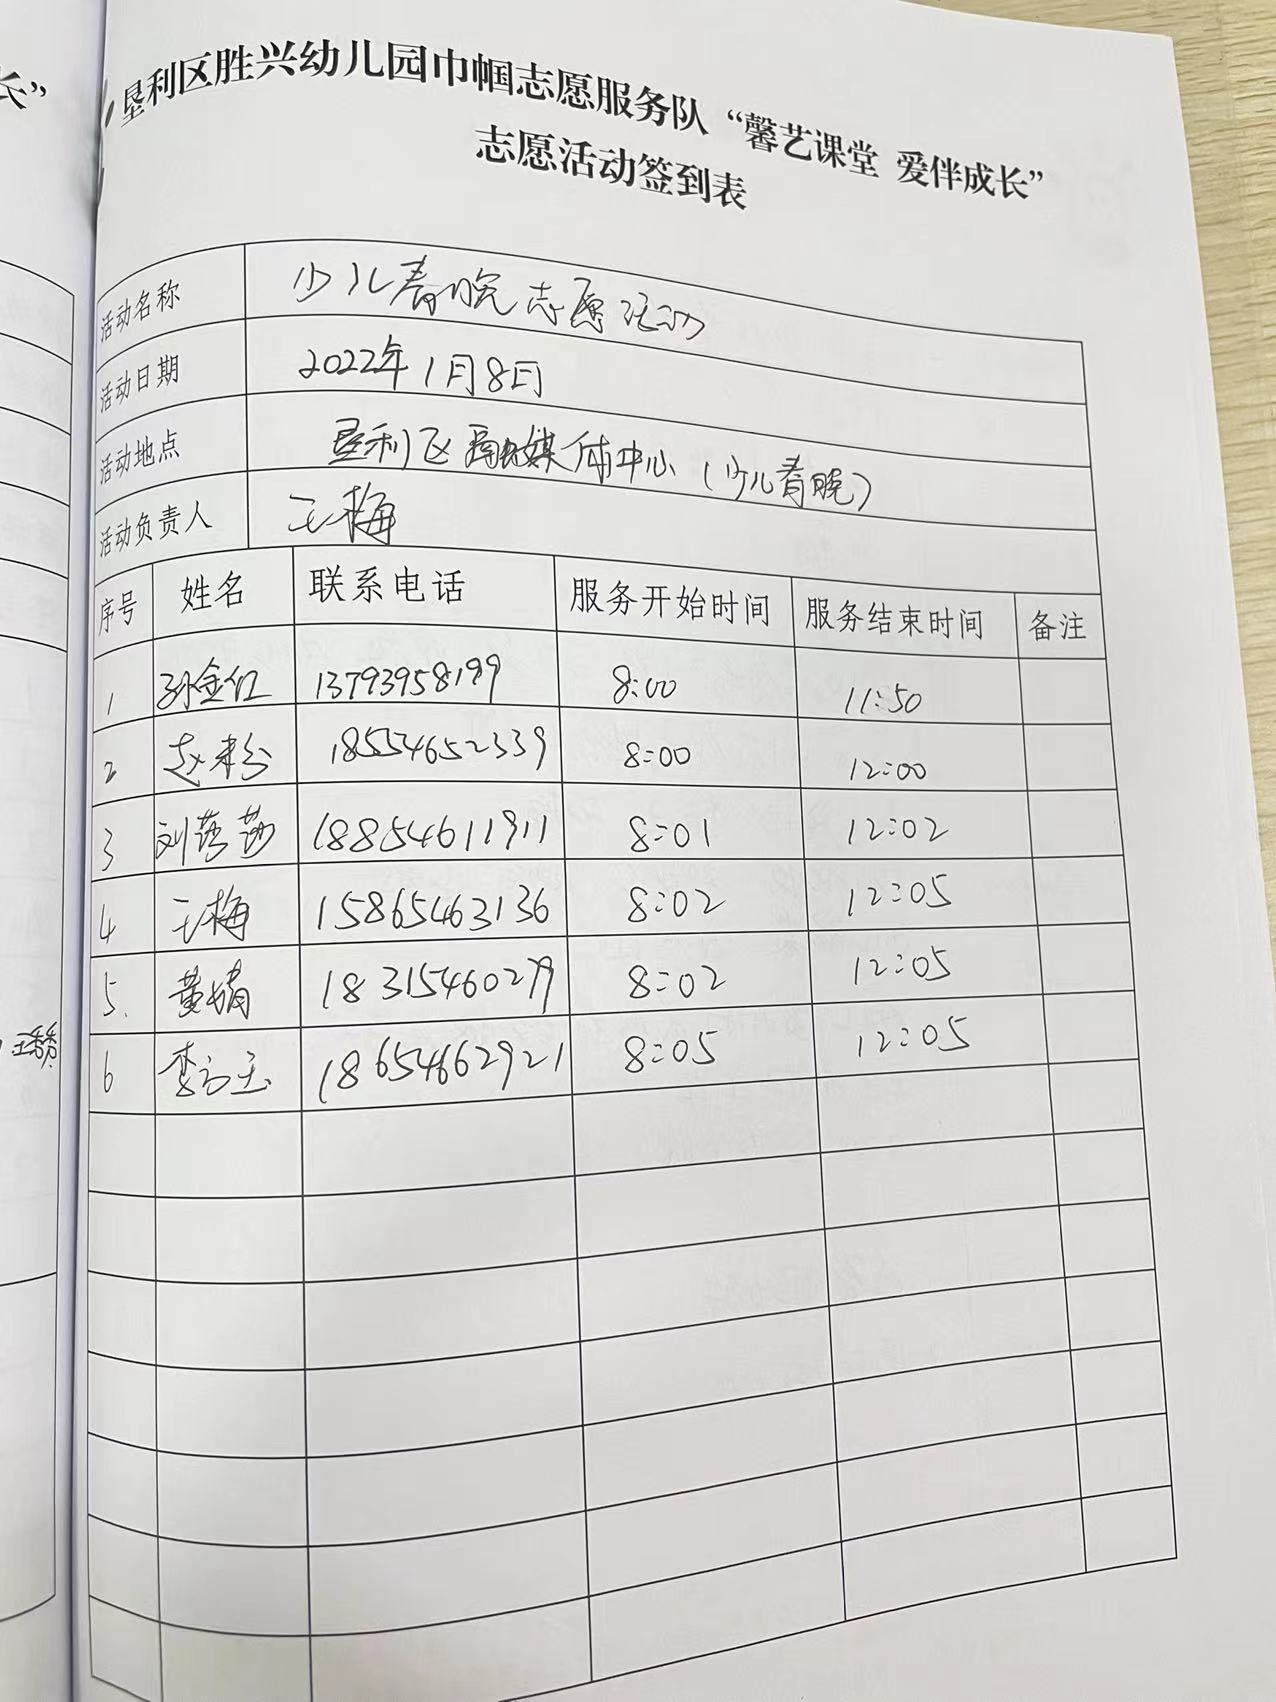 长”
垦利区胜兴幼儿园巾帼志愿服务队“馨艺课堂 爱伴成长”
志愿活动签到表
活动名称 少儿春晚志愿活动
活动日期 2022年1月8日
活动地点 垦利区融媒体中心（少儿春晚）
活动负责人 王梅
序号 姓名 联系电话 服务开始时间 服务结束时间 备注
1 孙金红 13793958199 8:00 11:50
2 赵彩 18554652339 8:00 12:00
3 刘莎莎 18854611911 8:01 12:02
4 王梅 15865463136 8:02 12:05
5. 黄娟 18315460279 8:02 12:05
6 李方玉 18654662921 8:05 12:05